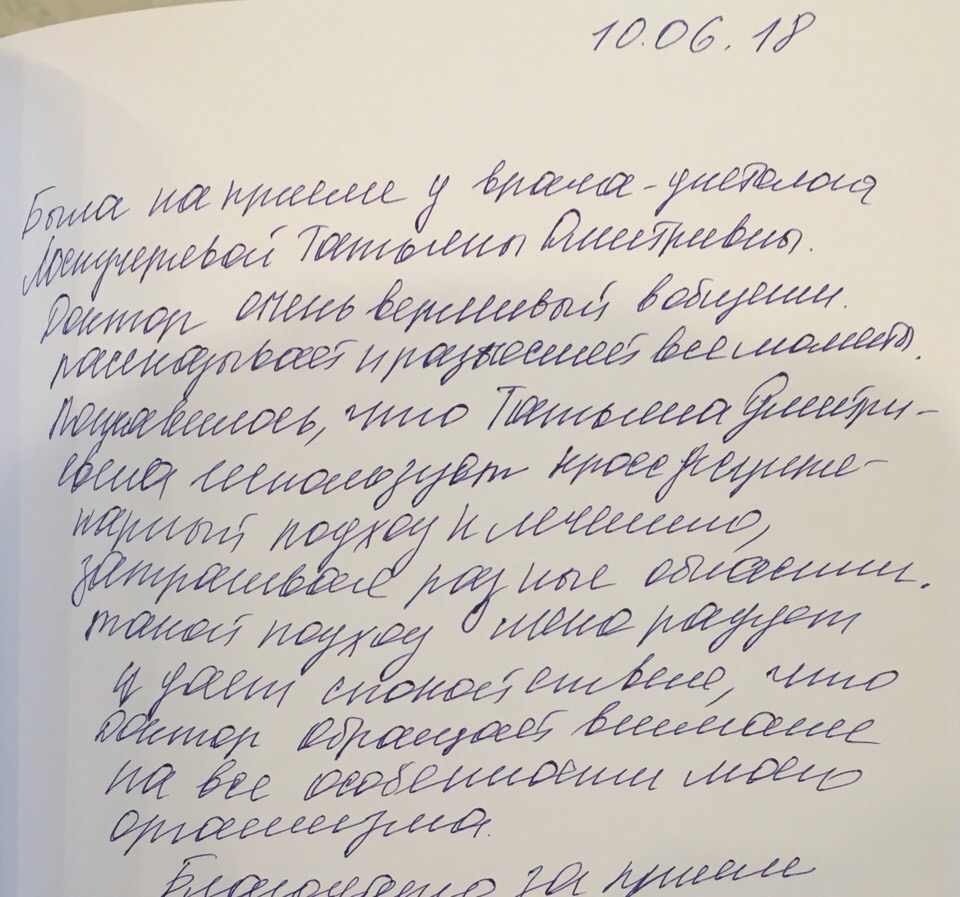 10.06.18
Была на приеме у врача-диетолога
Татьяны Дмитривны.
Доктор очень вежливый в общении.
рассказывает и разъясняет все моменты.
Понравилось, что Татьяна Дмитри-
евна использует кроссдисципли-
нарный подход к лечению,
затрагивая разные области.
такой подход меня радует
и дает спокойствие, что
Доктор обращает внимание
на все особенности моего
организма.
Благодарю за прием